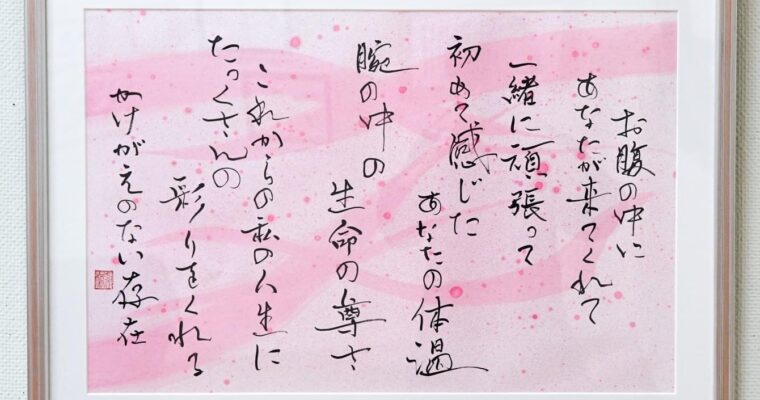 お腹の中に
あなたが来てくれて
一緒に頑張って
初めて感じた
あなたの体温
腕の中の
生命の尊さ
これからの私の人生に
たっくさんの
彩りをくれる
かけがえのない存在